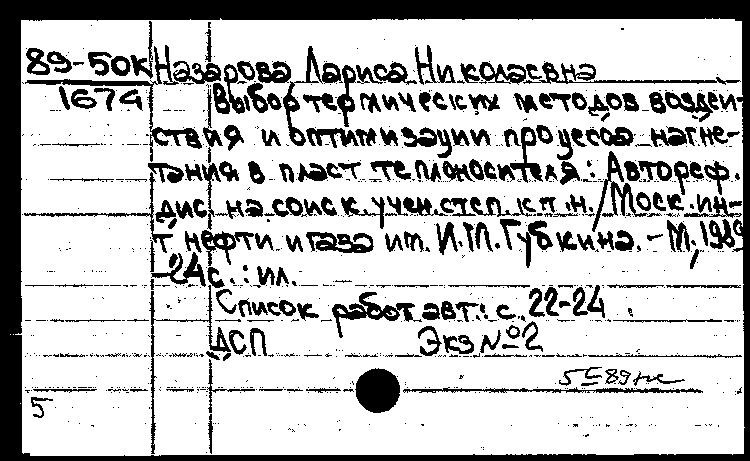 89-50к Назарова Лариса Николаевна
1674 Выбор термических методов воздей-
ствия и оптимизации процесса нагне-
тания в пласт теплоносителя: Автореф.
дис. на соиск. учен. степ. к.т.н./Моск. ин-
т нефти и газа им. И.М.Губкина. - М., 1989
-24с.: ил.
Список работ авт.: с. 22-24
ДСП Экз №2
5